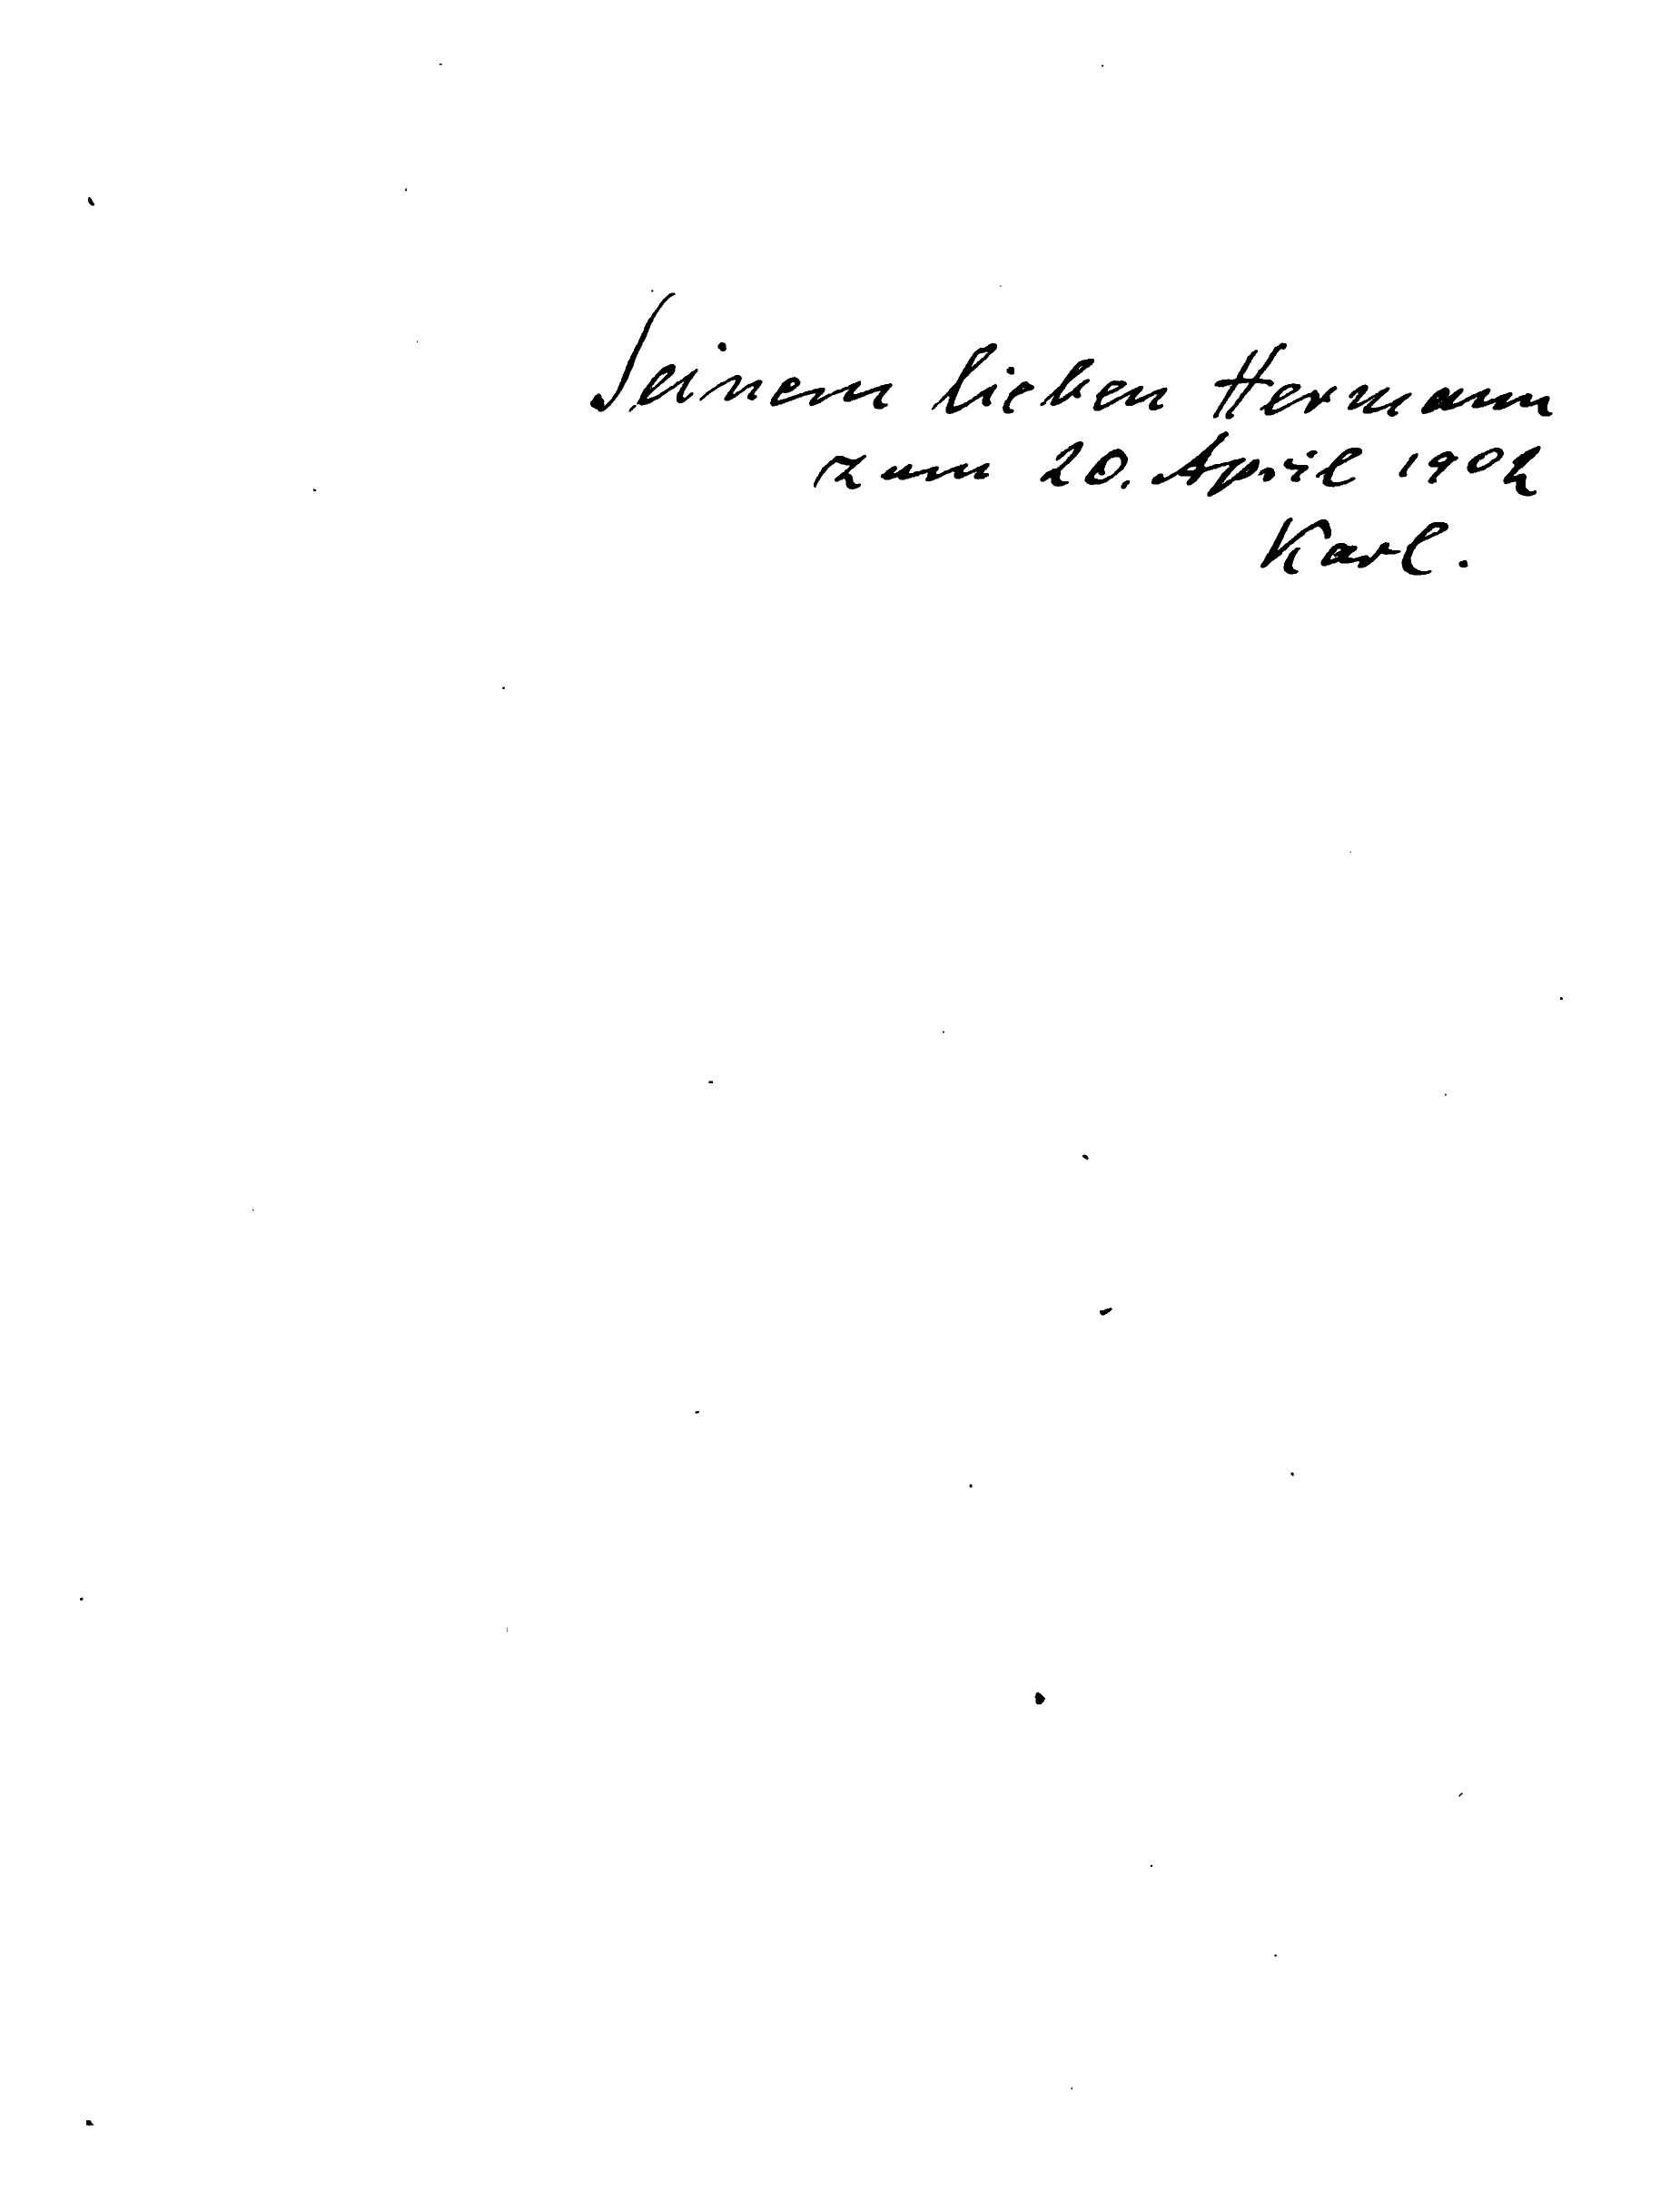 Seinem lieben Hermann
zum 20. April 1902
Karl.